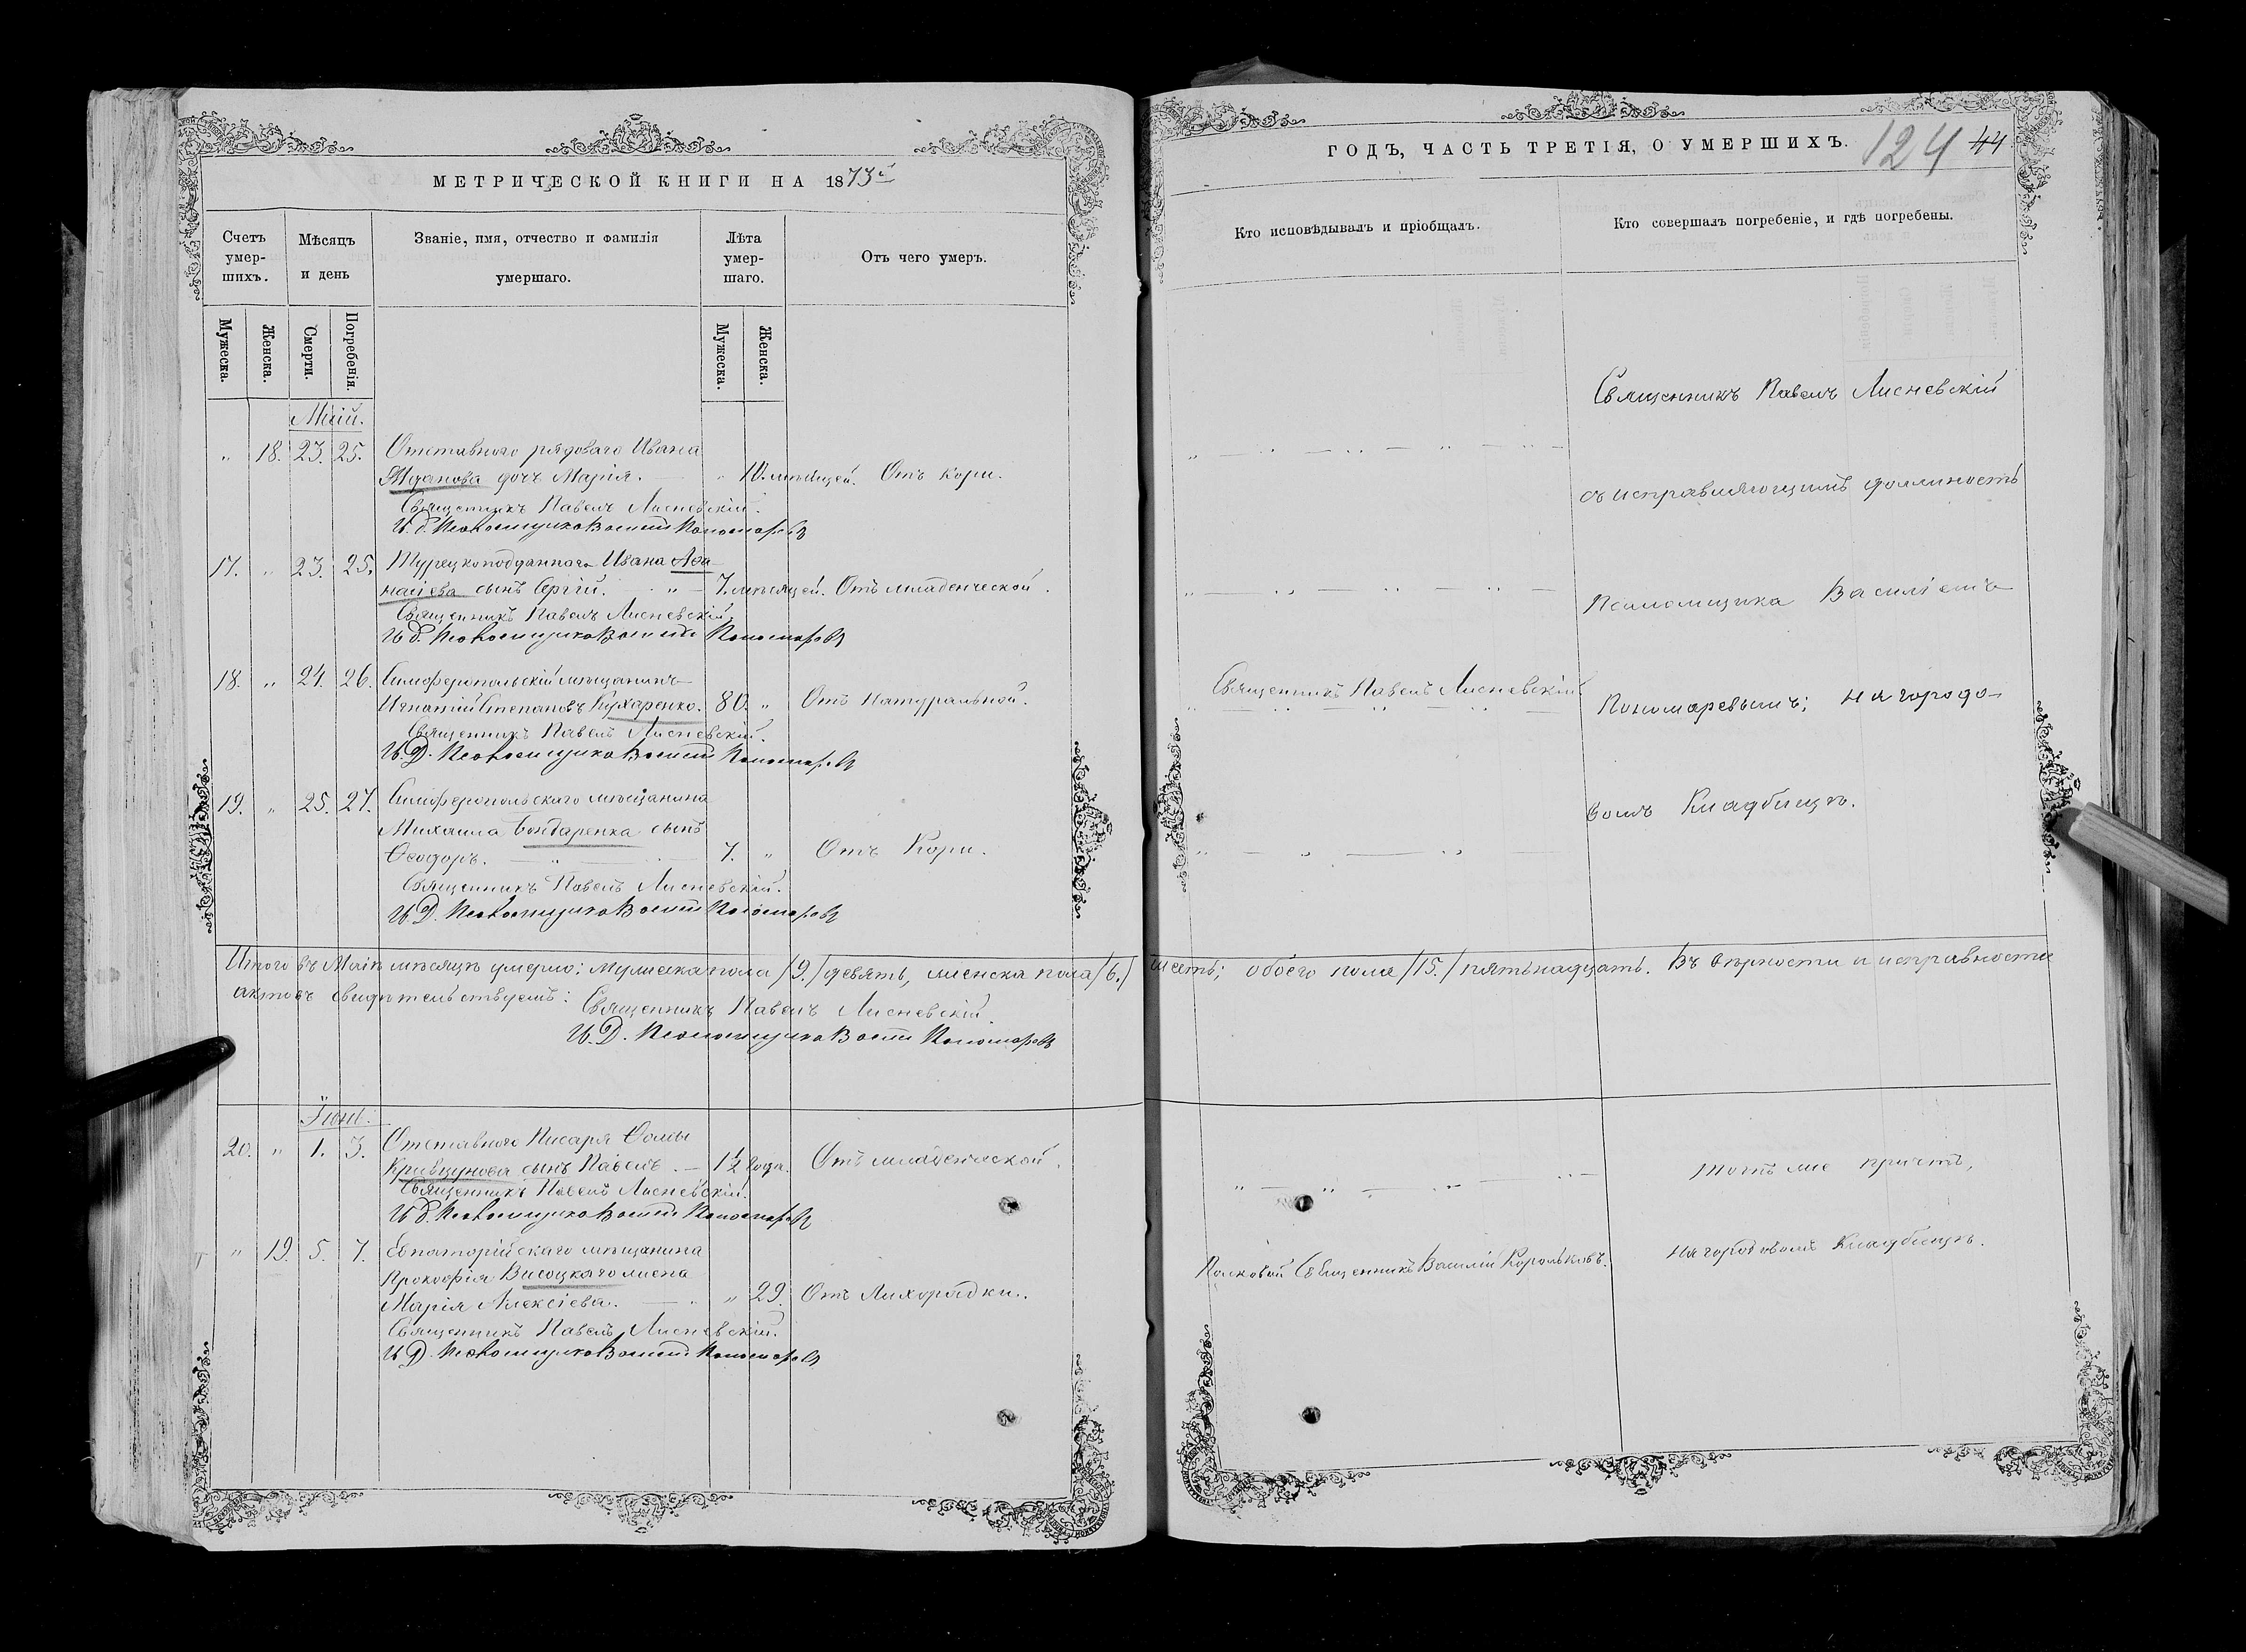 МЕТРИЧЕСКОЙ КНИГИ НА 1873й
Счетъ умер-шихъ.
Мѣсяцъ и день
Званіе, имя, отчество и фамилія умершаго.
Лѣта умер-шаго.
Отъ чего умеръ.
Мужеска.
Женска.
Смерти.
Погребенія.
Мужеска.
Женска.
Май.
" 18. 23. 25. Отставного рядоваго Ивана
Жданова дочь Марія. — " 10. мѣсяцей. Отъ Кори.
Священникъ Павелъ Лисневскій.
И. д. Псаломщика Василій Пономаревъ
17. " 23. 25. Турецкоподданнаго Ивана Аѳа
насіева сынъ Сергій. " — 7. мѣсяцей. Отъ младенческой.
Священникъ Павелъ Лисневскій
И. д. Псаломщика Василій Пономаревъ
18. " 24. 26. Симферопольскій мѣщанинъ
Игнатій Степановъ Кухаренко. 80. " Отъ Натуральной.
Священникъ Павелъ Лисневскій.
И. Д. Псаломщика Василій Пономаревъ
19. " 25. 27. Симферопольскаго мѣщанина
Михаила Бондаренка сынъ
Ѳеодоръ. — " — 7. " Отъ Кори.
Священникъ Павелъ Лисневскій.
И. Д. Псаломщика Василій Пономаревъ
Итого въ Маѣ мѣсяцѣ умерло: мужеска пола /9./ девять, женска пола /6./
актовъ свидѣтельствуемъ:
Священникъ Павелъ Лисневскій.
И. Д. Псаломщика Василій Пономаревъ
Іюнь.
20. " 1. 3. Отставного Писаря Ѳомы
Кривцунова сынъ Павелъ. — 1½ года. Отъ младенческой.
Священникъ Павелъ Лисневскій.
И. д. Псаломщика Василій Пономаревъ
" 19. 5. 7. Евпаторійскаго мѣщанина
Прокофія Висоцкаго жена
Марія Алексіева. — " 29. Отъ Лихорадки.
Священникъ Павелъ Лисневскій.
И. Д. Псаломщика Василій Пономаревъ
ГОДЪ, ЧАСТЬ ТРЕТІЯ, О УМЕРШИХЪ.
124 44
Кто исповѣдывалъ и пріобщалъ.
Кто совершалъ погребеніе, и гдѣ погребены.
Священникъ Павелъ Лисневскій
съ исправляющимъ должность
Псаломщика Василіемъ
Священникъ Павелъ Лисневскій
Пономаревымъ; на городо-
вомъ Кладбищѣ.
шесть; обоего пола /15./ пятьнадцать. Въ вѣрности и исправности
тотъ же причтъ,
на городовомъ Кладбищѣ.
Полковой Священникъ Василій Корольковъ.